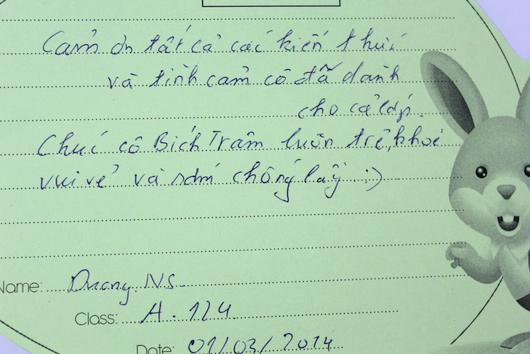 Cảm ơn tất cả các kiến thức
và tình cảm cô đã dành
cho cả lớp.
Chúc cô Bích Trâm luôn trẻ, khoẻ
vui vẻ và sớm chồng lấy :)
Name: Duong NS
Class: A.124
Date: 01/03/2014